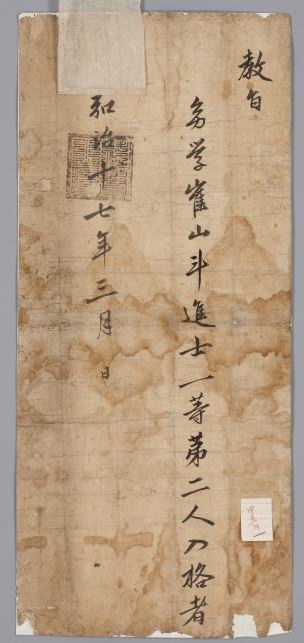 教旨
幼学崔山斗進士一等第二人入格者
弘治十七年三月 日